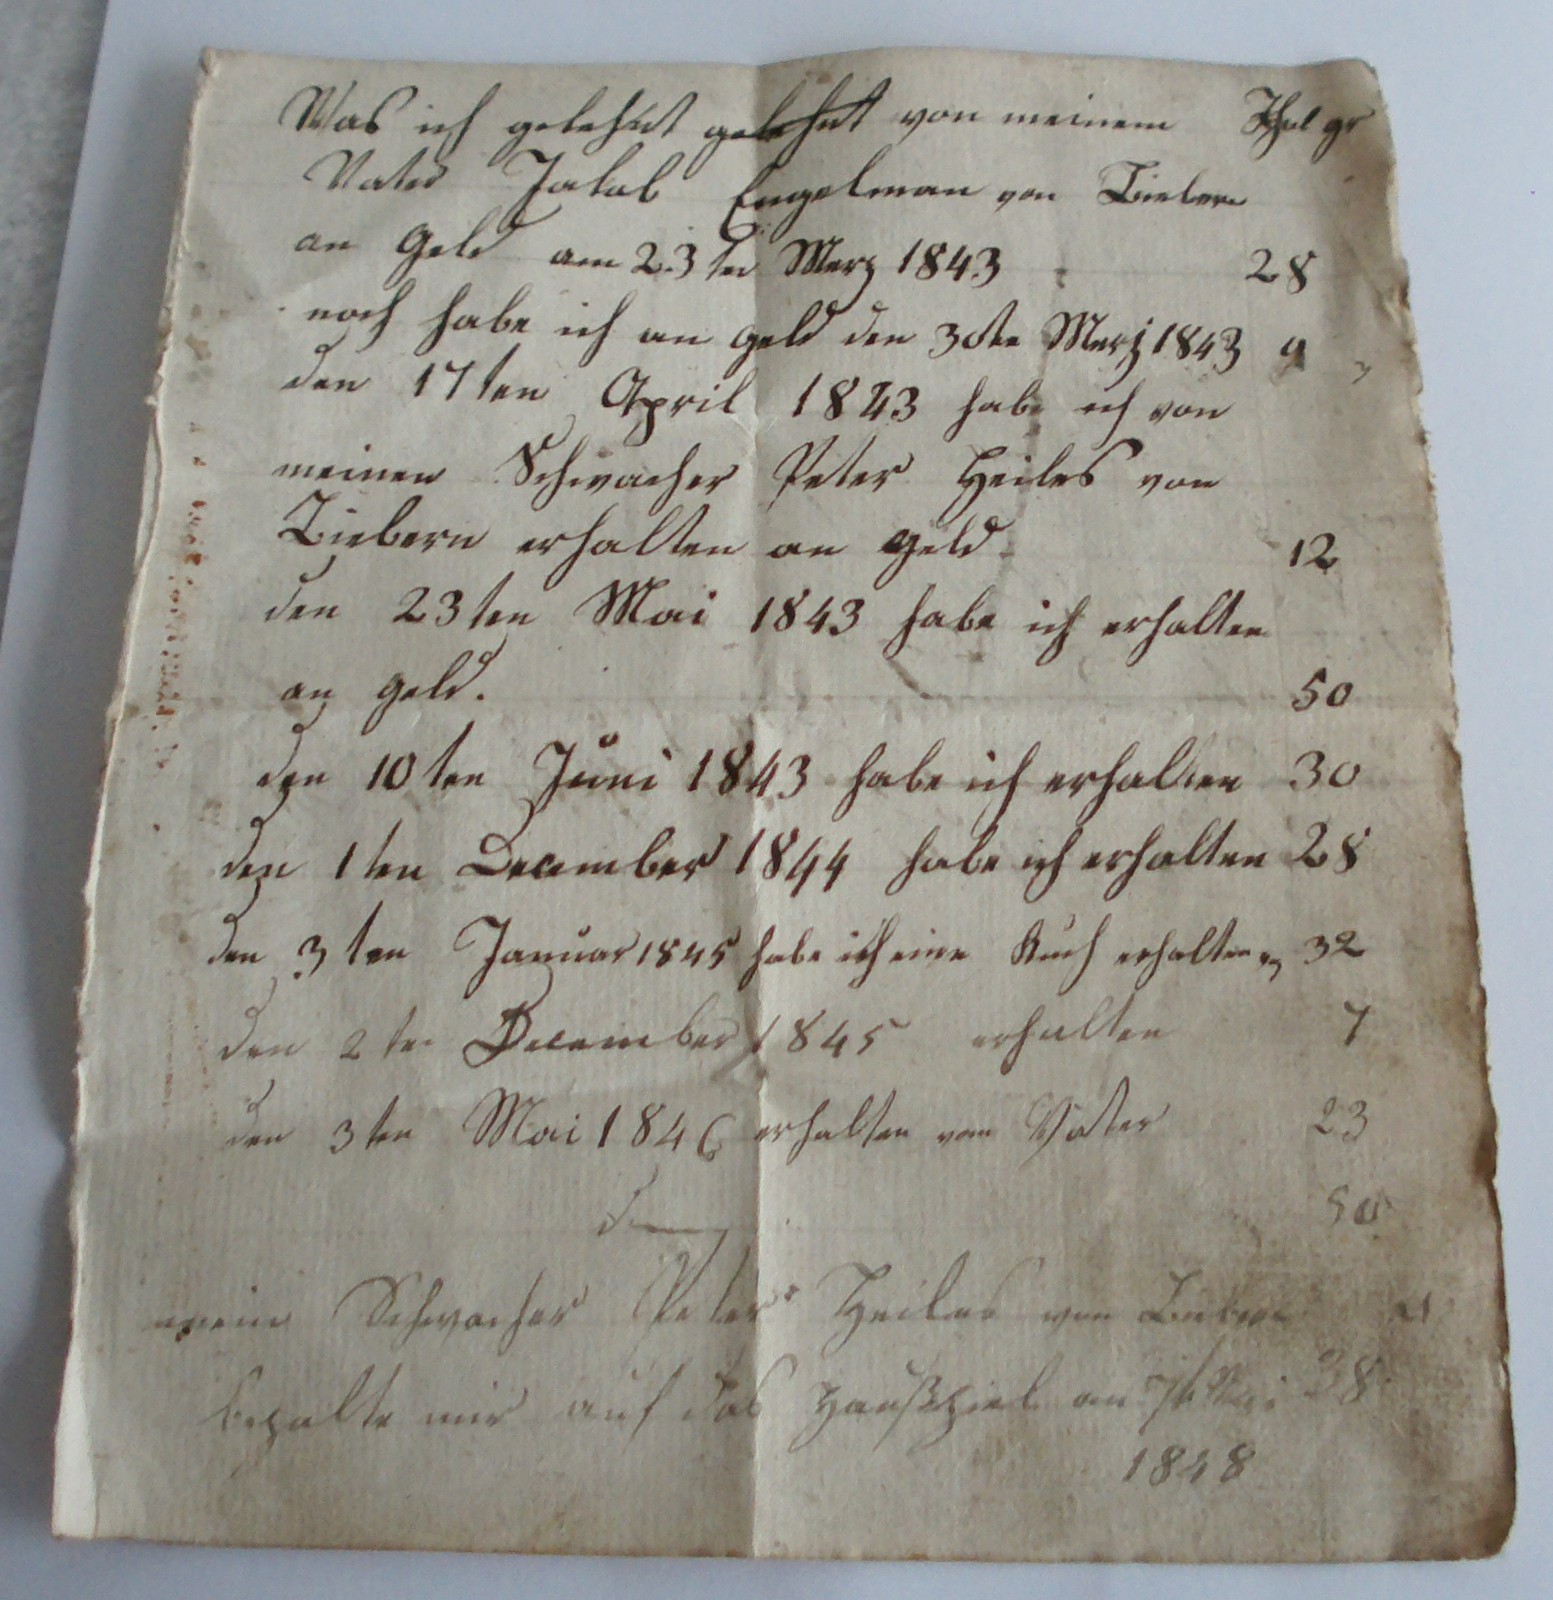 Was ich gelehnt gelehnt von meinem Thal gr
Vater Jakob Engelman von Liebern
an Geld am 23ten Merz 1843 28
noch habe ich an geld den 30ten Merz 1843 9
den 17ten April 1843 habe ich von
meinen Schwacher Peter Heiles von
Liebern erhalten an geld 12
den 23ten Mai 1843 habe ich erhalten
an geld. 50
den 10ten Juni 1843 habe ich erhalten 30
den 1ten December 1844 habe ich erhalten 28
den 3ten Januar 1845 habe ich eine Kuch erhalten 32
den 2ten December 1845 erhalten 7
den 3ten Mai 1846 erhalten vom Vater 23
50
mein Schwacher Peter Heiles von Liebern
bezalte mir auf das Haußziel an Mai 38
1848